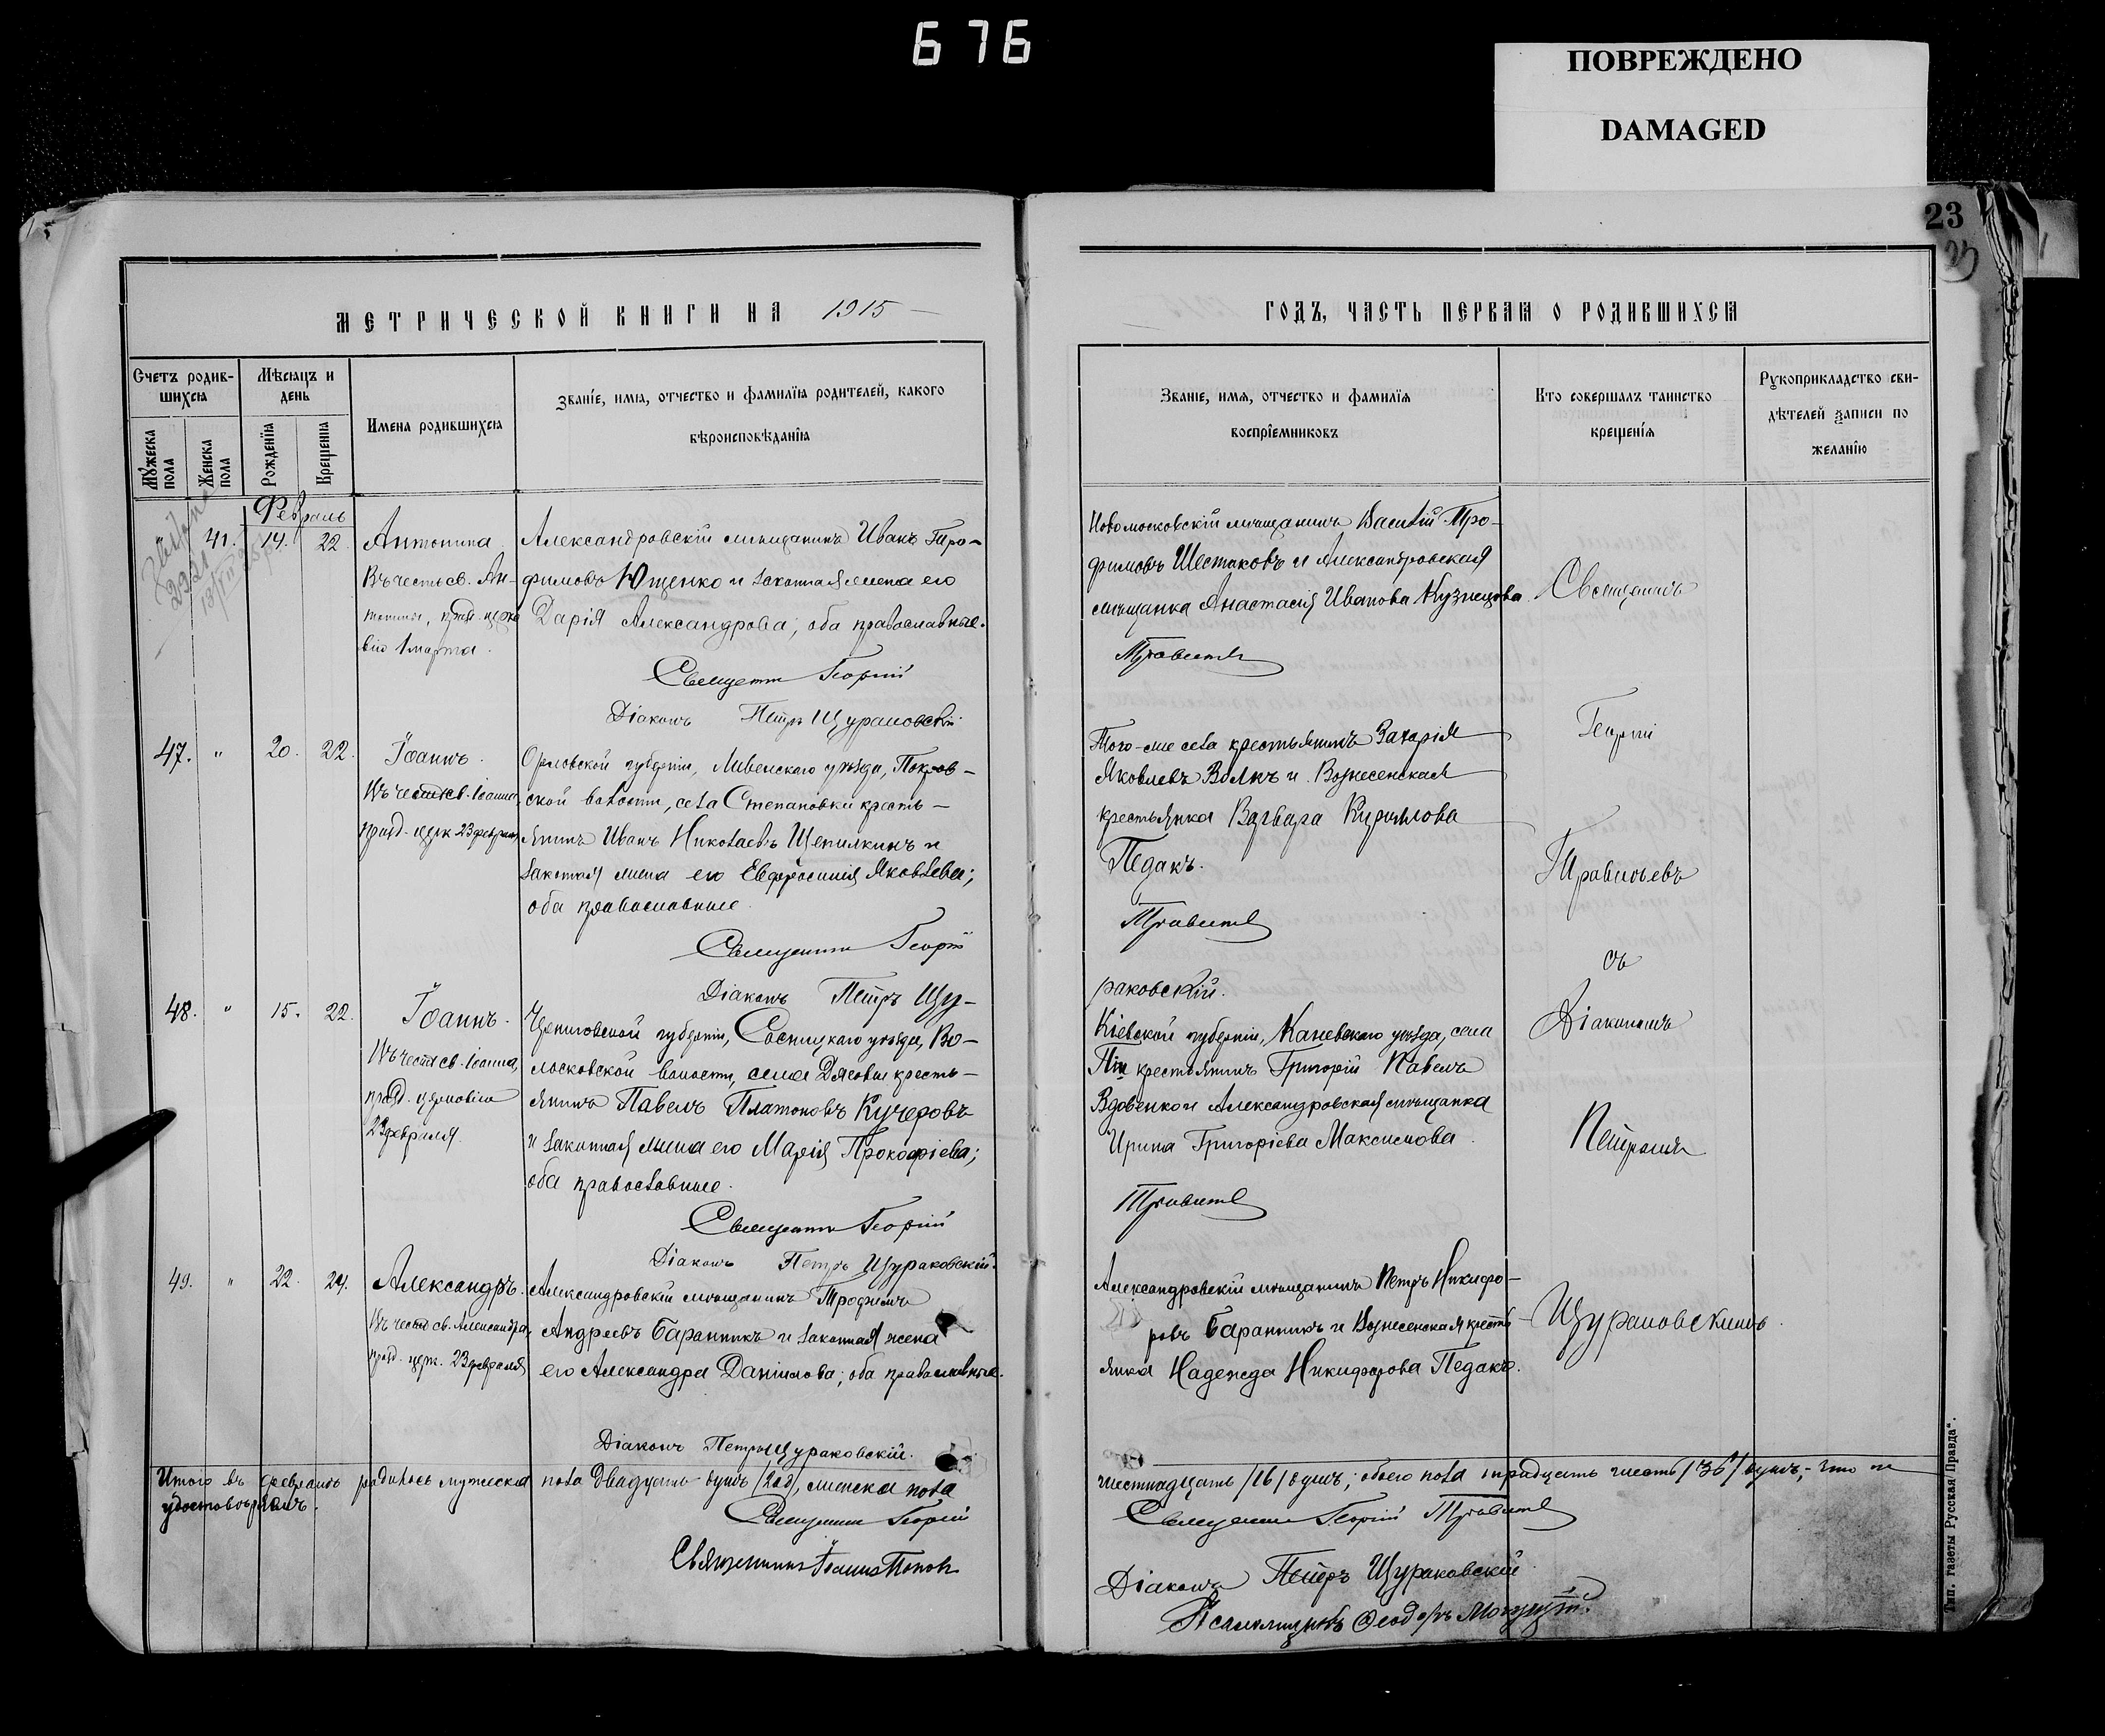 676
ПОВРЕЖДЕНО
DAMAGED
23
МЕТРИЧЕСКОЙ КНИГИ НА 1915
Счетъ родив-
шихсѧ
Мѣсѧцъ и
день
Имена родившихсѧ
Званіе, имѧ, отчество и фамиліѧ родителей, какого
вѣроисповѣданіѧ
Мужеска
пола
Женска
пола
Рожденіѧ
Крещеніѧ
Февраль
41. 14. 22. Антонина
Въ честь св. Ан-
1 марта.
Александровскій мѣщанинъ Иванъ Тро-
фимовъ Ющенко и законная жена его
Дарія Александрова; оба православные.
Священникъ Георгій
Діаконъ Петръ Щураковскій
47. " 20. 22. Іоаннъ.
Въ честь св. Іоанна,
празд. церк. 23 февраля
Орловской губерніи, Ливенскаго уѣзда, Покров-
ской волости, села Степановки кресть-
янинъ Иванъ Николаевъ Щепилкинъ и
законная жена его Евфросинія Яковлева;
оба православные.
Священникъ Георгій
Діаконъ Петръ Щу-
48. " 15. 22. Іоаннъ.
Въ честь св. Іоанна,
празд. церковію
23 февраля.
Черниговской губерніи, Сосницкаго уѣзда, Во-
лосковской волости, села кресть-
янинъ Павелъ Платоновъ Кучеровъ
и законная жена его Марія Прокофіева;
оба православные.
Священникъ Георгій
Діаконъ Петръ Щураковскій.
49. " 22. 24. Александръ.
Въ честь св. Александра,
празд. церк. 23 февраля
Александровскій мѣщанинъ Трофимъ
Андреевъ Баранникъ и законная жена
его Александра Даніилова; оба православные.
Діаконъ Петръ Щураковскій.
Итого въ февралѣ родилось мужеска пола двадцать душъ /20д/, женска пола
удостовѣряемъ.
Священникъ Георгій
Священникъ Іоаннъ Поповъ
ГОДЪ, ЧАСТЬ ПЕРВАѦ О РОДИВШИХСѦ
Званіе, имѧ, отчество и фамиліѧ
воспріемниковъ
Кто совершалъ таинство
крещеніѧ
Рукоприкладство сви-
дѣтелей записи по
желанію
Новомосковскій мѣщанинъ Василій Тро-
фимовъ Шестаковъ и Александровская
мѣщанка Анастасія Иванова Кузнецова.
Того-же села крестьянинъ Захарія
Яковлевъ Волкъ и Вознесенская
крестьянка Варвара Кириллова
Педакъ.
раковскій.
Кіевской губерніи, Каневскаго уѣзда, села
крестьянинъ Григорій Павелъ
Вдовенко и Александровская мѣщанка
Ирина Григоріева Максимова.
Александровскій мѣщанинъ Петръ Никифо-
ровъ Баранникъ и Вознесенская кресть-
янка Надежда Никифорова Педакъ.
Священникъ
Георгій
съ
Діакономъ
Петромъ
Щураковскимъ.
шестнадцать /16/ душъ; обоего пола тридцать шесть /36/ душъ, - что и
Священникъ Георгій
Діаконъ Петръ Щураковскій
Псаломщикъ Ѳеодоръ
Тип. газеты „Русская Правда“.